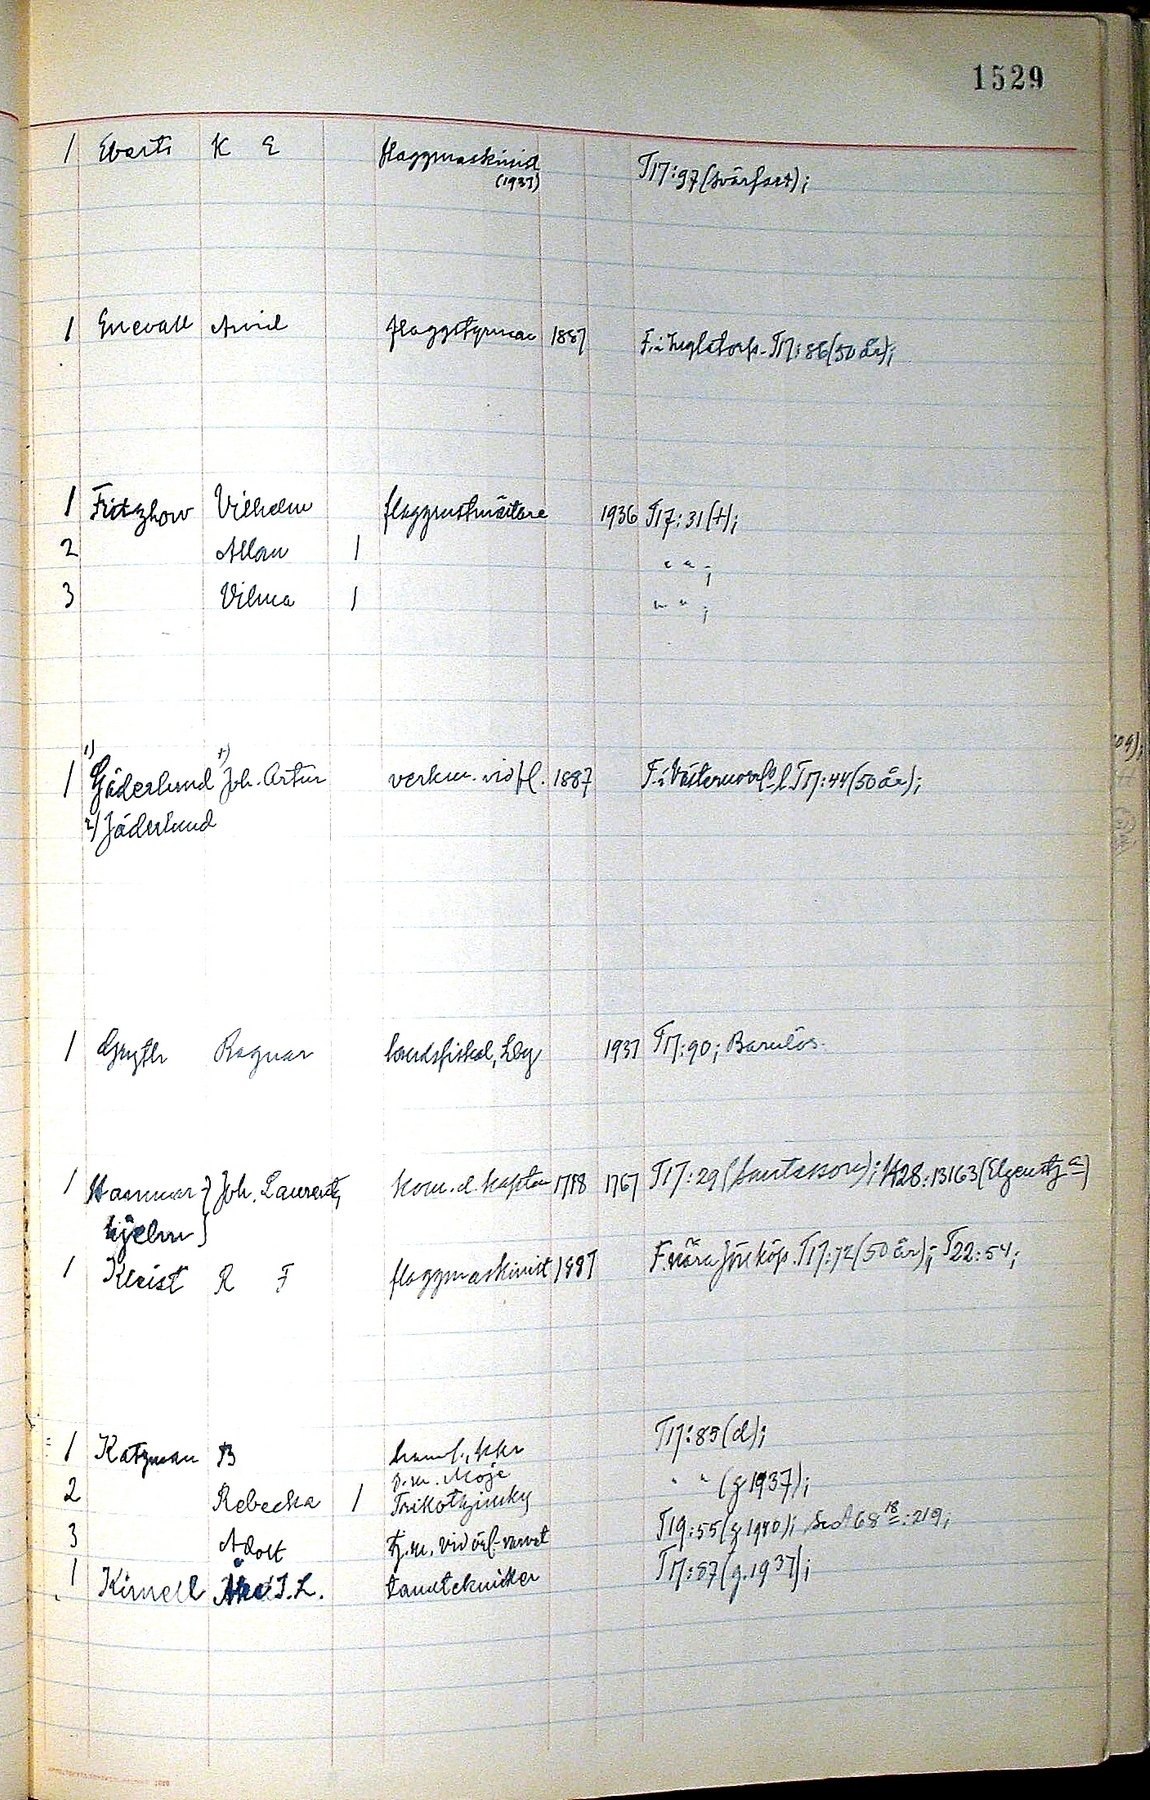 1529
1 Everts K E flaggmaskinist
(1937) T17:97(svärfar);
1 Enevall Arvid flaggstyrman 1887 F. i T17:86(50 år);
1 Fritzhow Vilhelm flaggrustmästare 1936 T17:31(†);
2 Allan 1 " " ;
3 Vilma 1 " " ;
1) 1)
1 Gjäderlund Joh. Artur verkm. vid fl. 1887 F. i T17:44(50 år);
2) Jäderlund
1 Gryth Ragnar landsfiskal, Lby 1937 T17:90; Barnlös.
1 Hammar} Joh. Laurentz kom.d. kapten 1718 1767 T17:29 ; H28:13163
hjelm}
1 Kleist R F flaggmaskinist 1887 F. nära Jönköp. T17:72(50 år); T22:54;
1 Katzman B T17:85(d);
2 Rebecka 1 " " (g 1937);
3 Adolf tj.m. vid örl. varvet T19:55(g 1940); Sv.D. 68 18:219;
1 Kimell Åke T. L. tandtekniker T17:87(g. 1937);